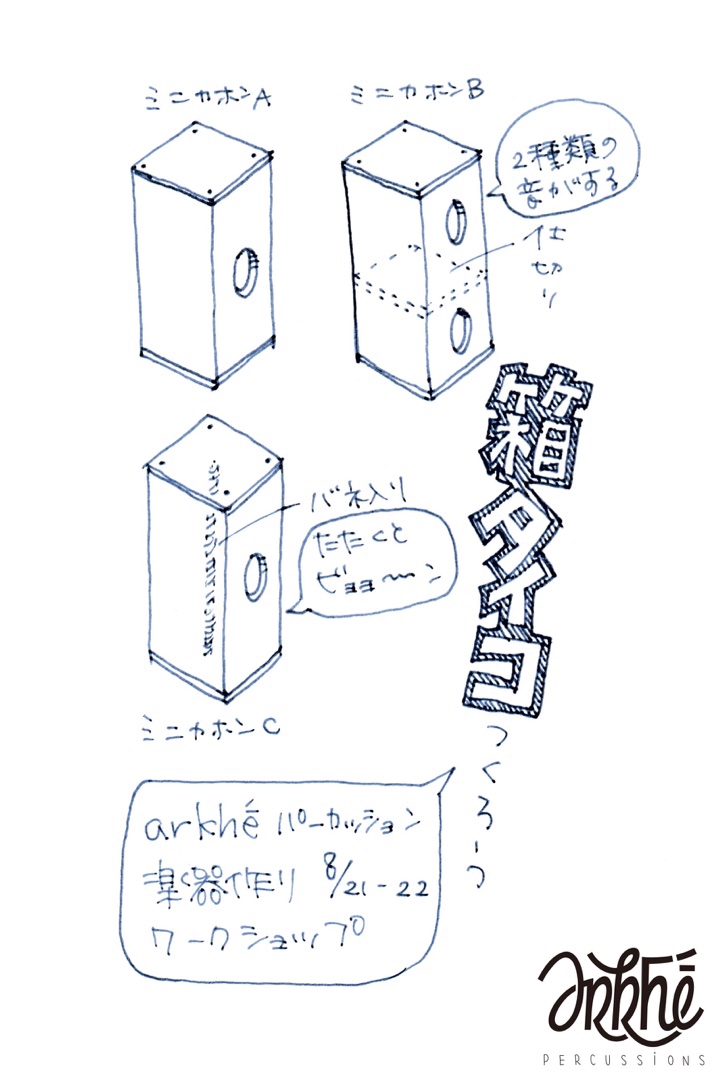 ミニカホンA
ミニカホンB
2種類の
音がする
仕切り
バネ入り
たたくと
ビョョ〜ン
ミニカホンC
箱タイコ
つくろーつ
arkhé パーカッション
楽器作り 8/21-22
ワークショップ
arkhé
PERCUSSIONS